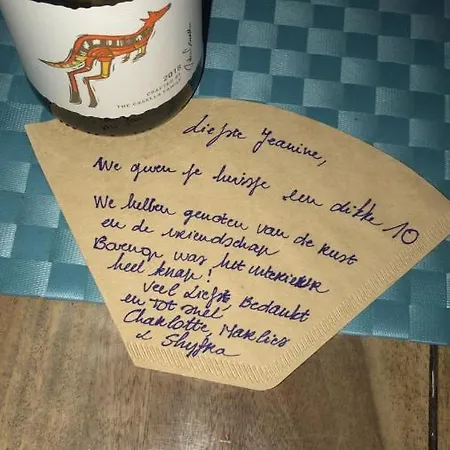 2018
CRAFTED BY
THE CASELLA FAMILY
Liefste Jeanine,
We geven je huisje een dikke 10
We hebben genoten van de rust
en de vriendschap
Bovenop was het interieur
heel knap!
Veel Liefs, Bedankt
en tot snel
Charlotte, Marlies
&